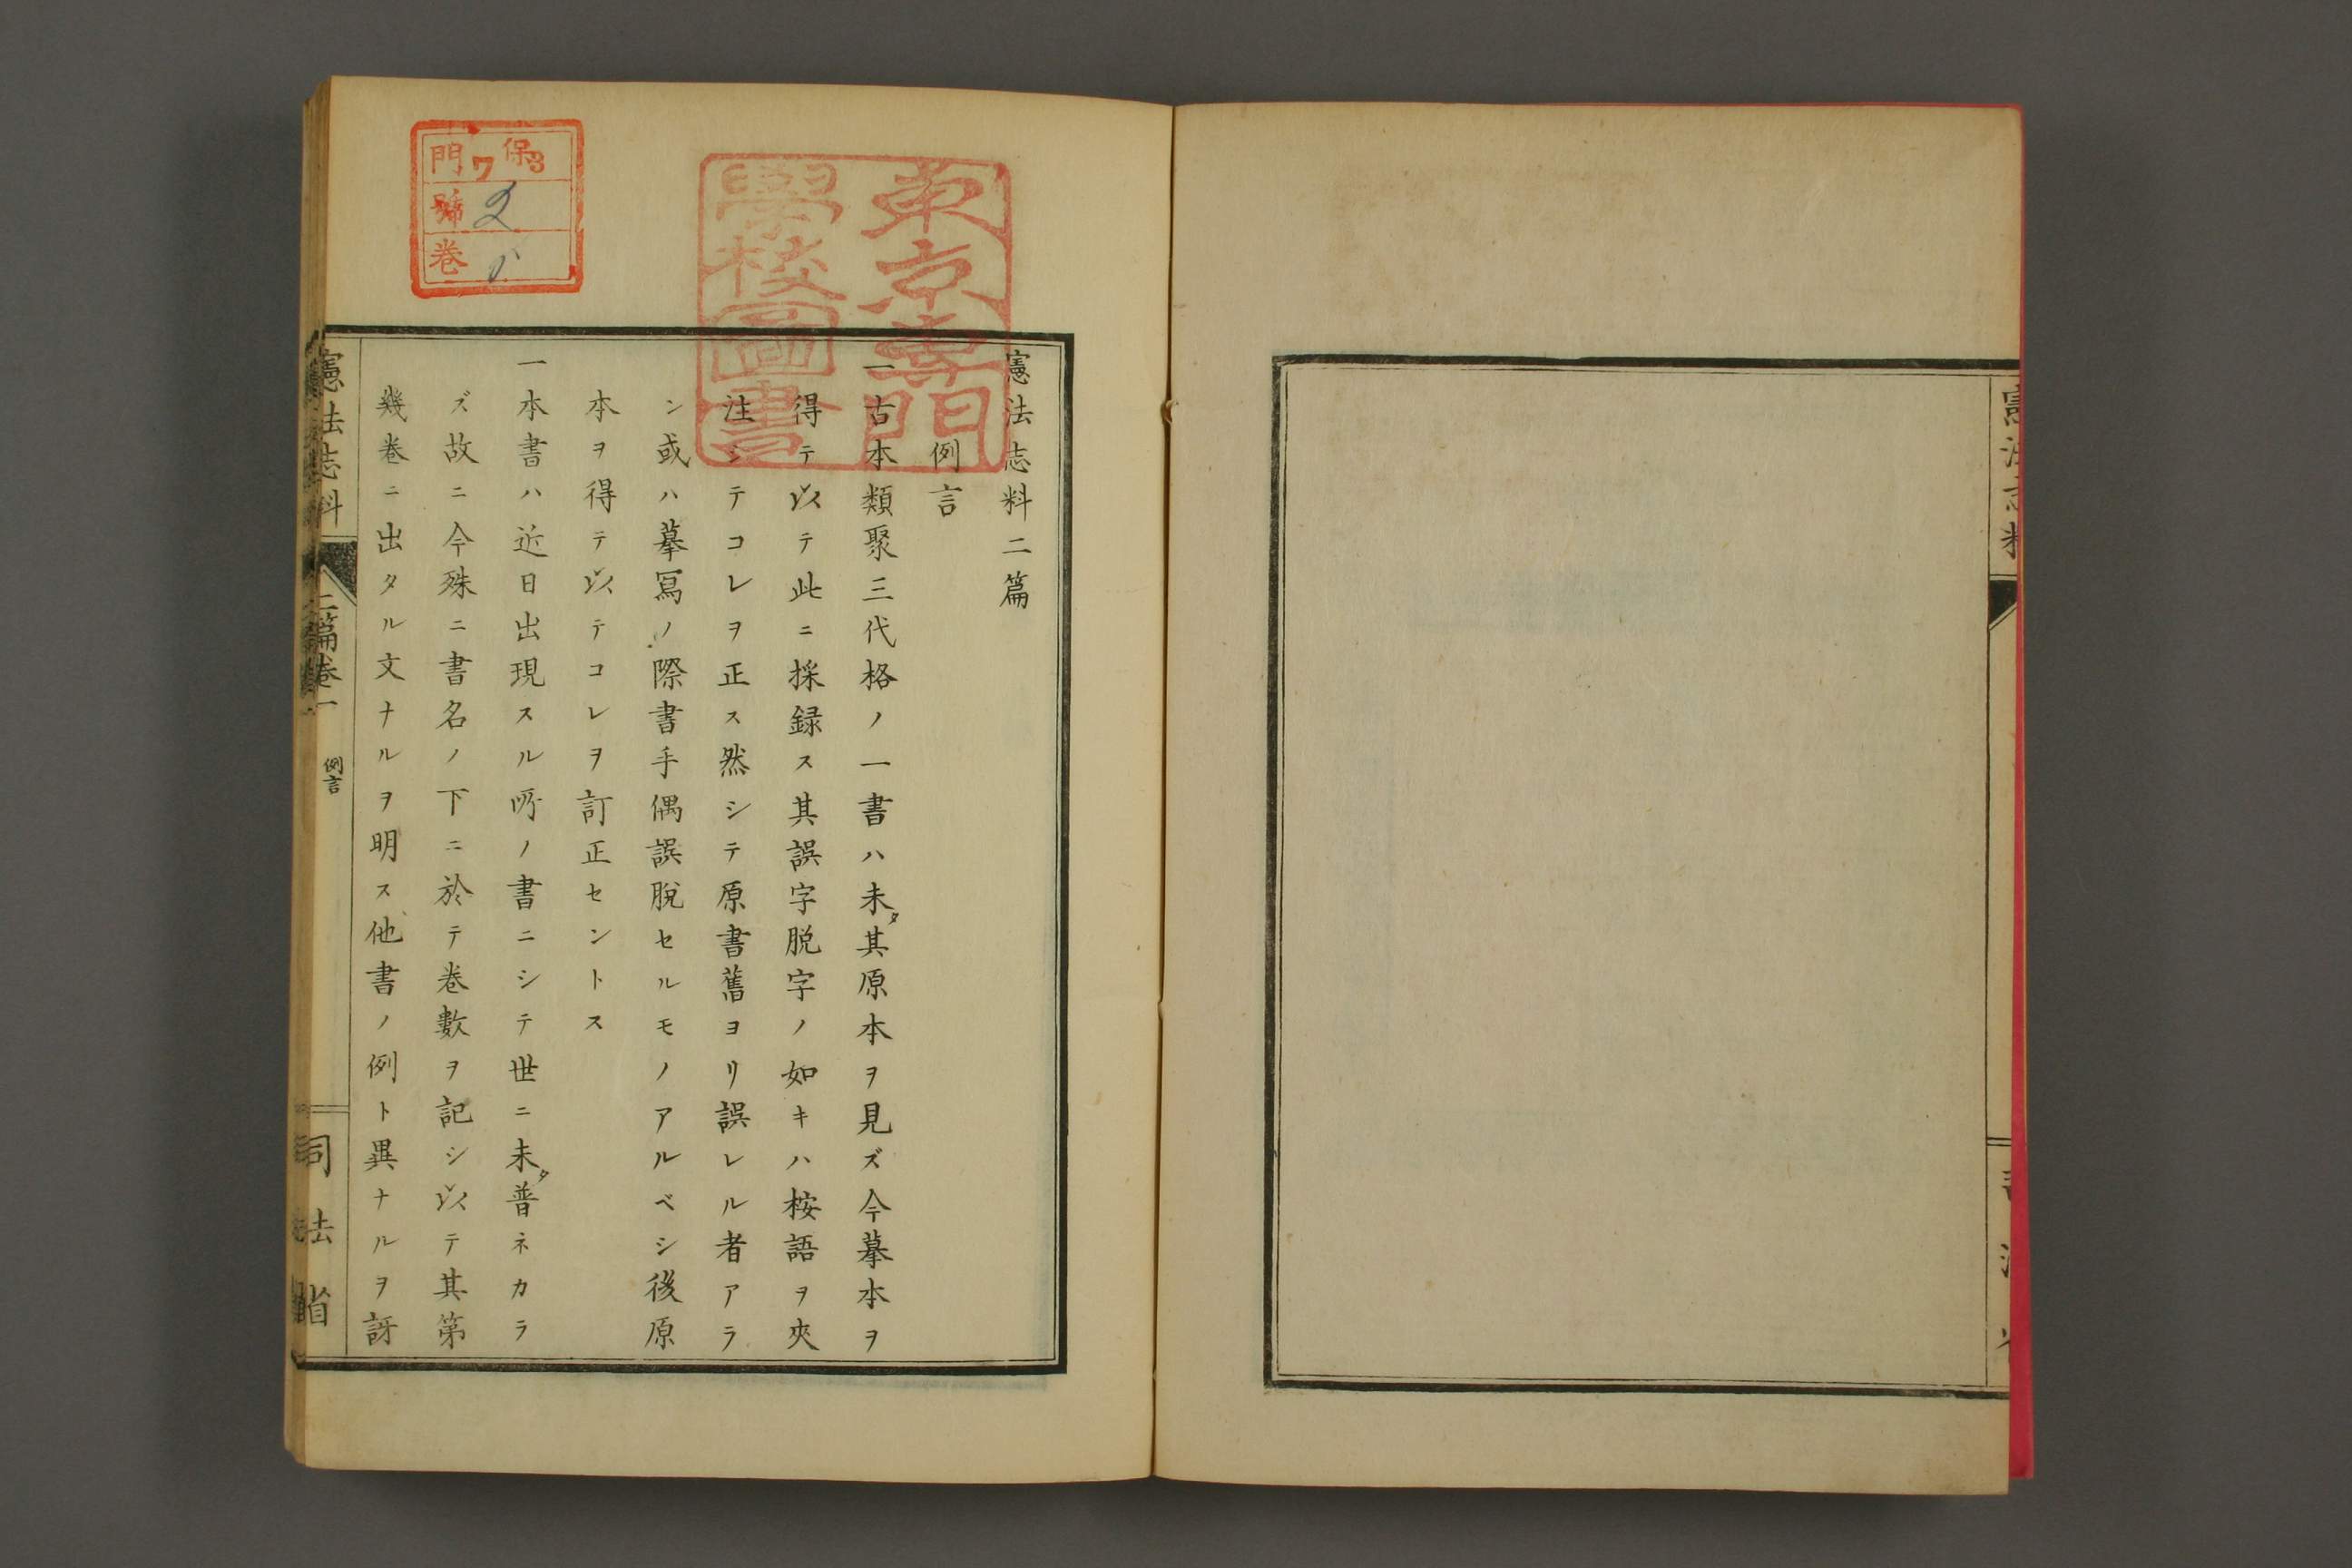 憲法志料二篇
例言
一古本類聚三代格ノ一書ハ未タ其原本ヲ見ズ今摹本ヲ
得テ以テ此ニ採録ス其誤字脱字ノ如キハ桉語ヲ夾
注シテコレヲ正ス然シテ原書舊ヨリ誤レル者アラ
ン或ハ摹寫ノ際書手偶誤脫セルモノアルベシ後原
本ヲ得テ以テコレヲ訂正セントス
一本書ハ近日出現スル所ノ書ニシテ世ニ未タ普ネカラ
ズ故ニ今殊ニ書名ノ下ニ於テ卷數ヲ記シ以テ其第
幾卷ニ出タル文ナルヲ明ス他書ノ例ト異ナルヲ訝
憲法志料
二篇卷一
例言
司法省
東京專門
學校圖書
保3
門7
號2
卷
憲法志料